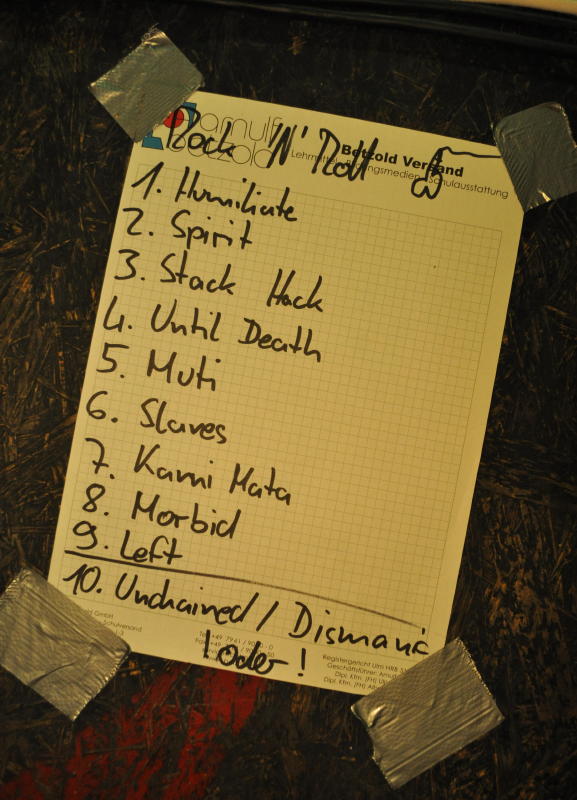 arnulf
betzold
Betzold Versand
Lehrmittel
Schulausstattung
Rock 'N' Roll
1. Humiliate
2. Spirit
3. Stack Hack
4. Until Death
5. Muti
6. Slaves
7. Kami Mata
8. Morbid
9. Left
10. Unchained / Dismani
! oder !
GmbH
Schulversand
Registergericht Ulm HRB
Geschäftsführer: Arnulf
Dipl. Kfm. (FH)
Dipl. Kfm. (FH)